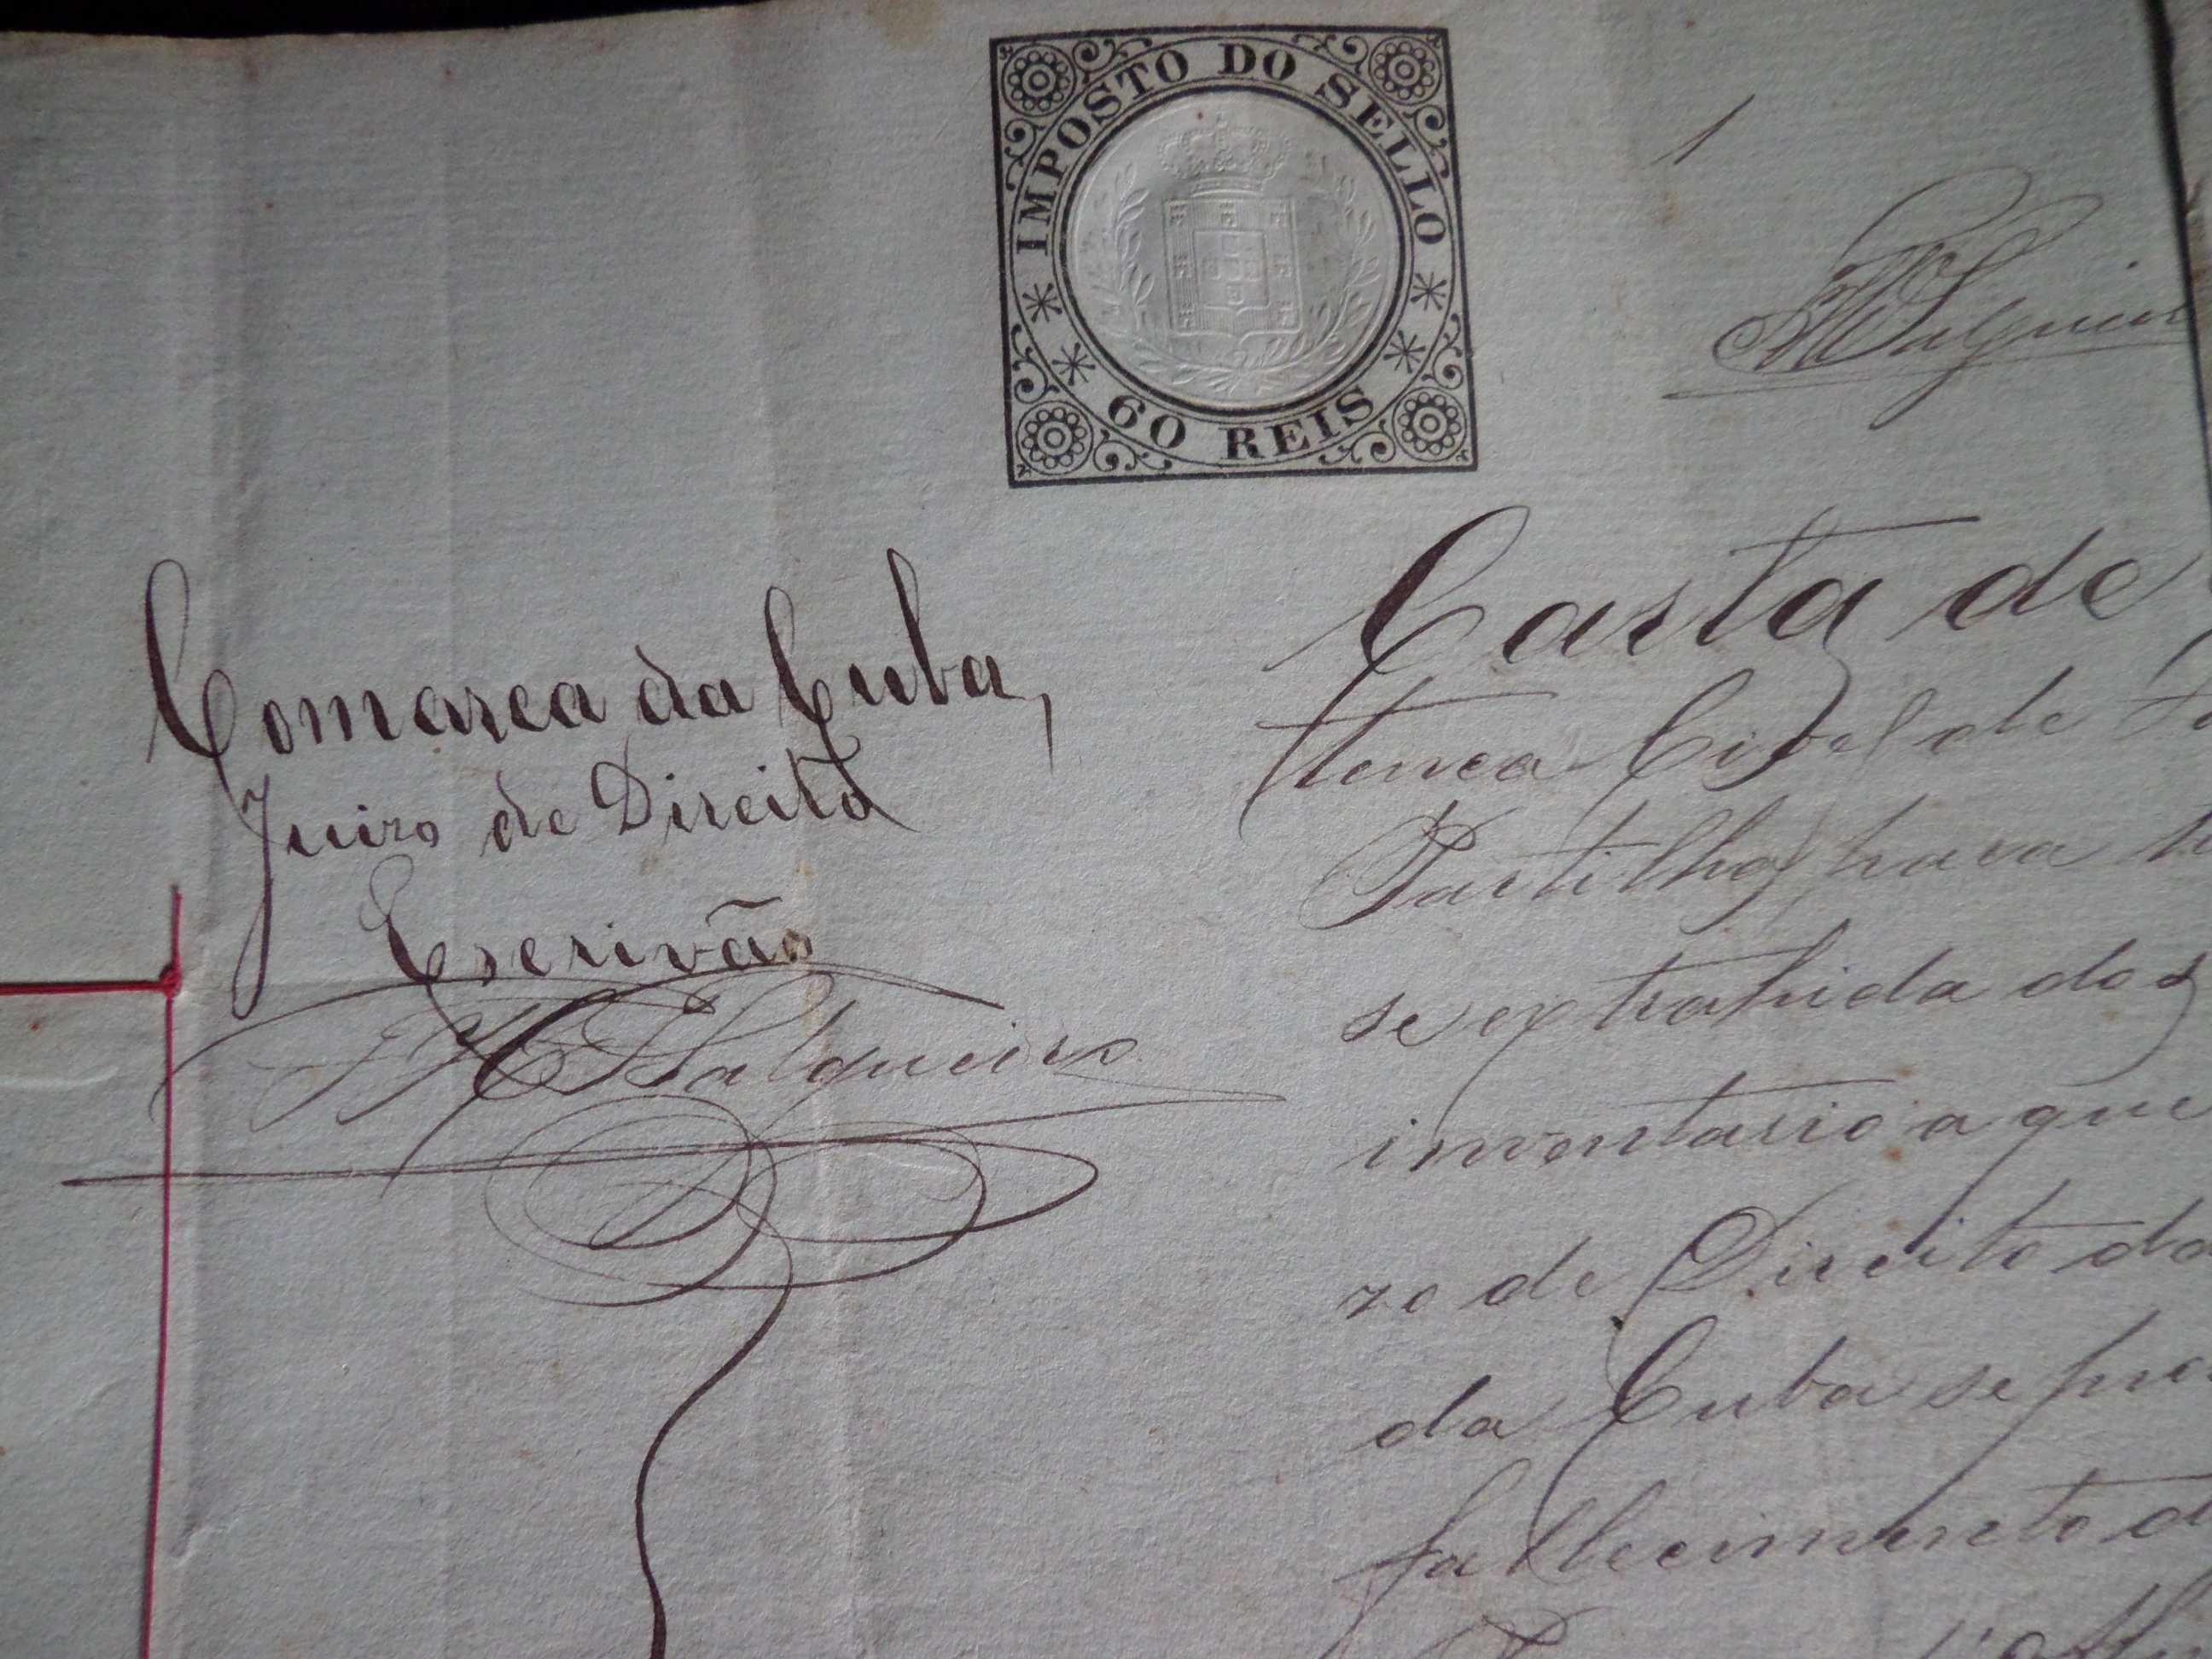 IMPOSTO DO SELLO
60 REIS
1
Comarca da Cuba,
Juizo de Direito
Escrivão
Salgueiro
Carta de
tença Civel de
Partilhas para
se extrahida dos
inventario a que
zo de Direito da
da Cuba se
fallecimento d